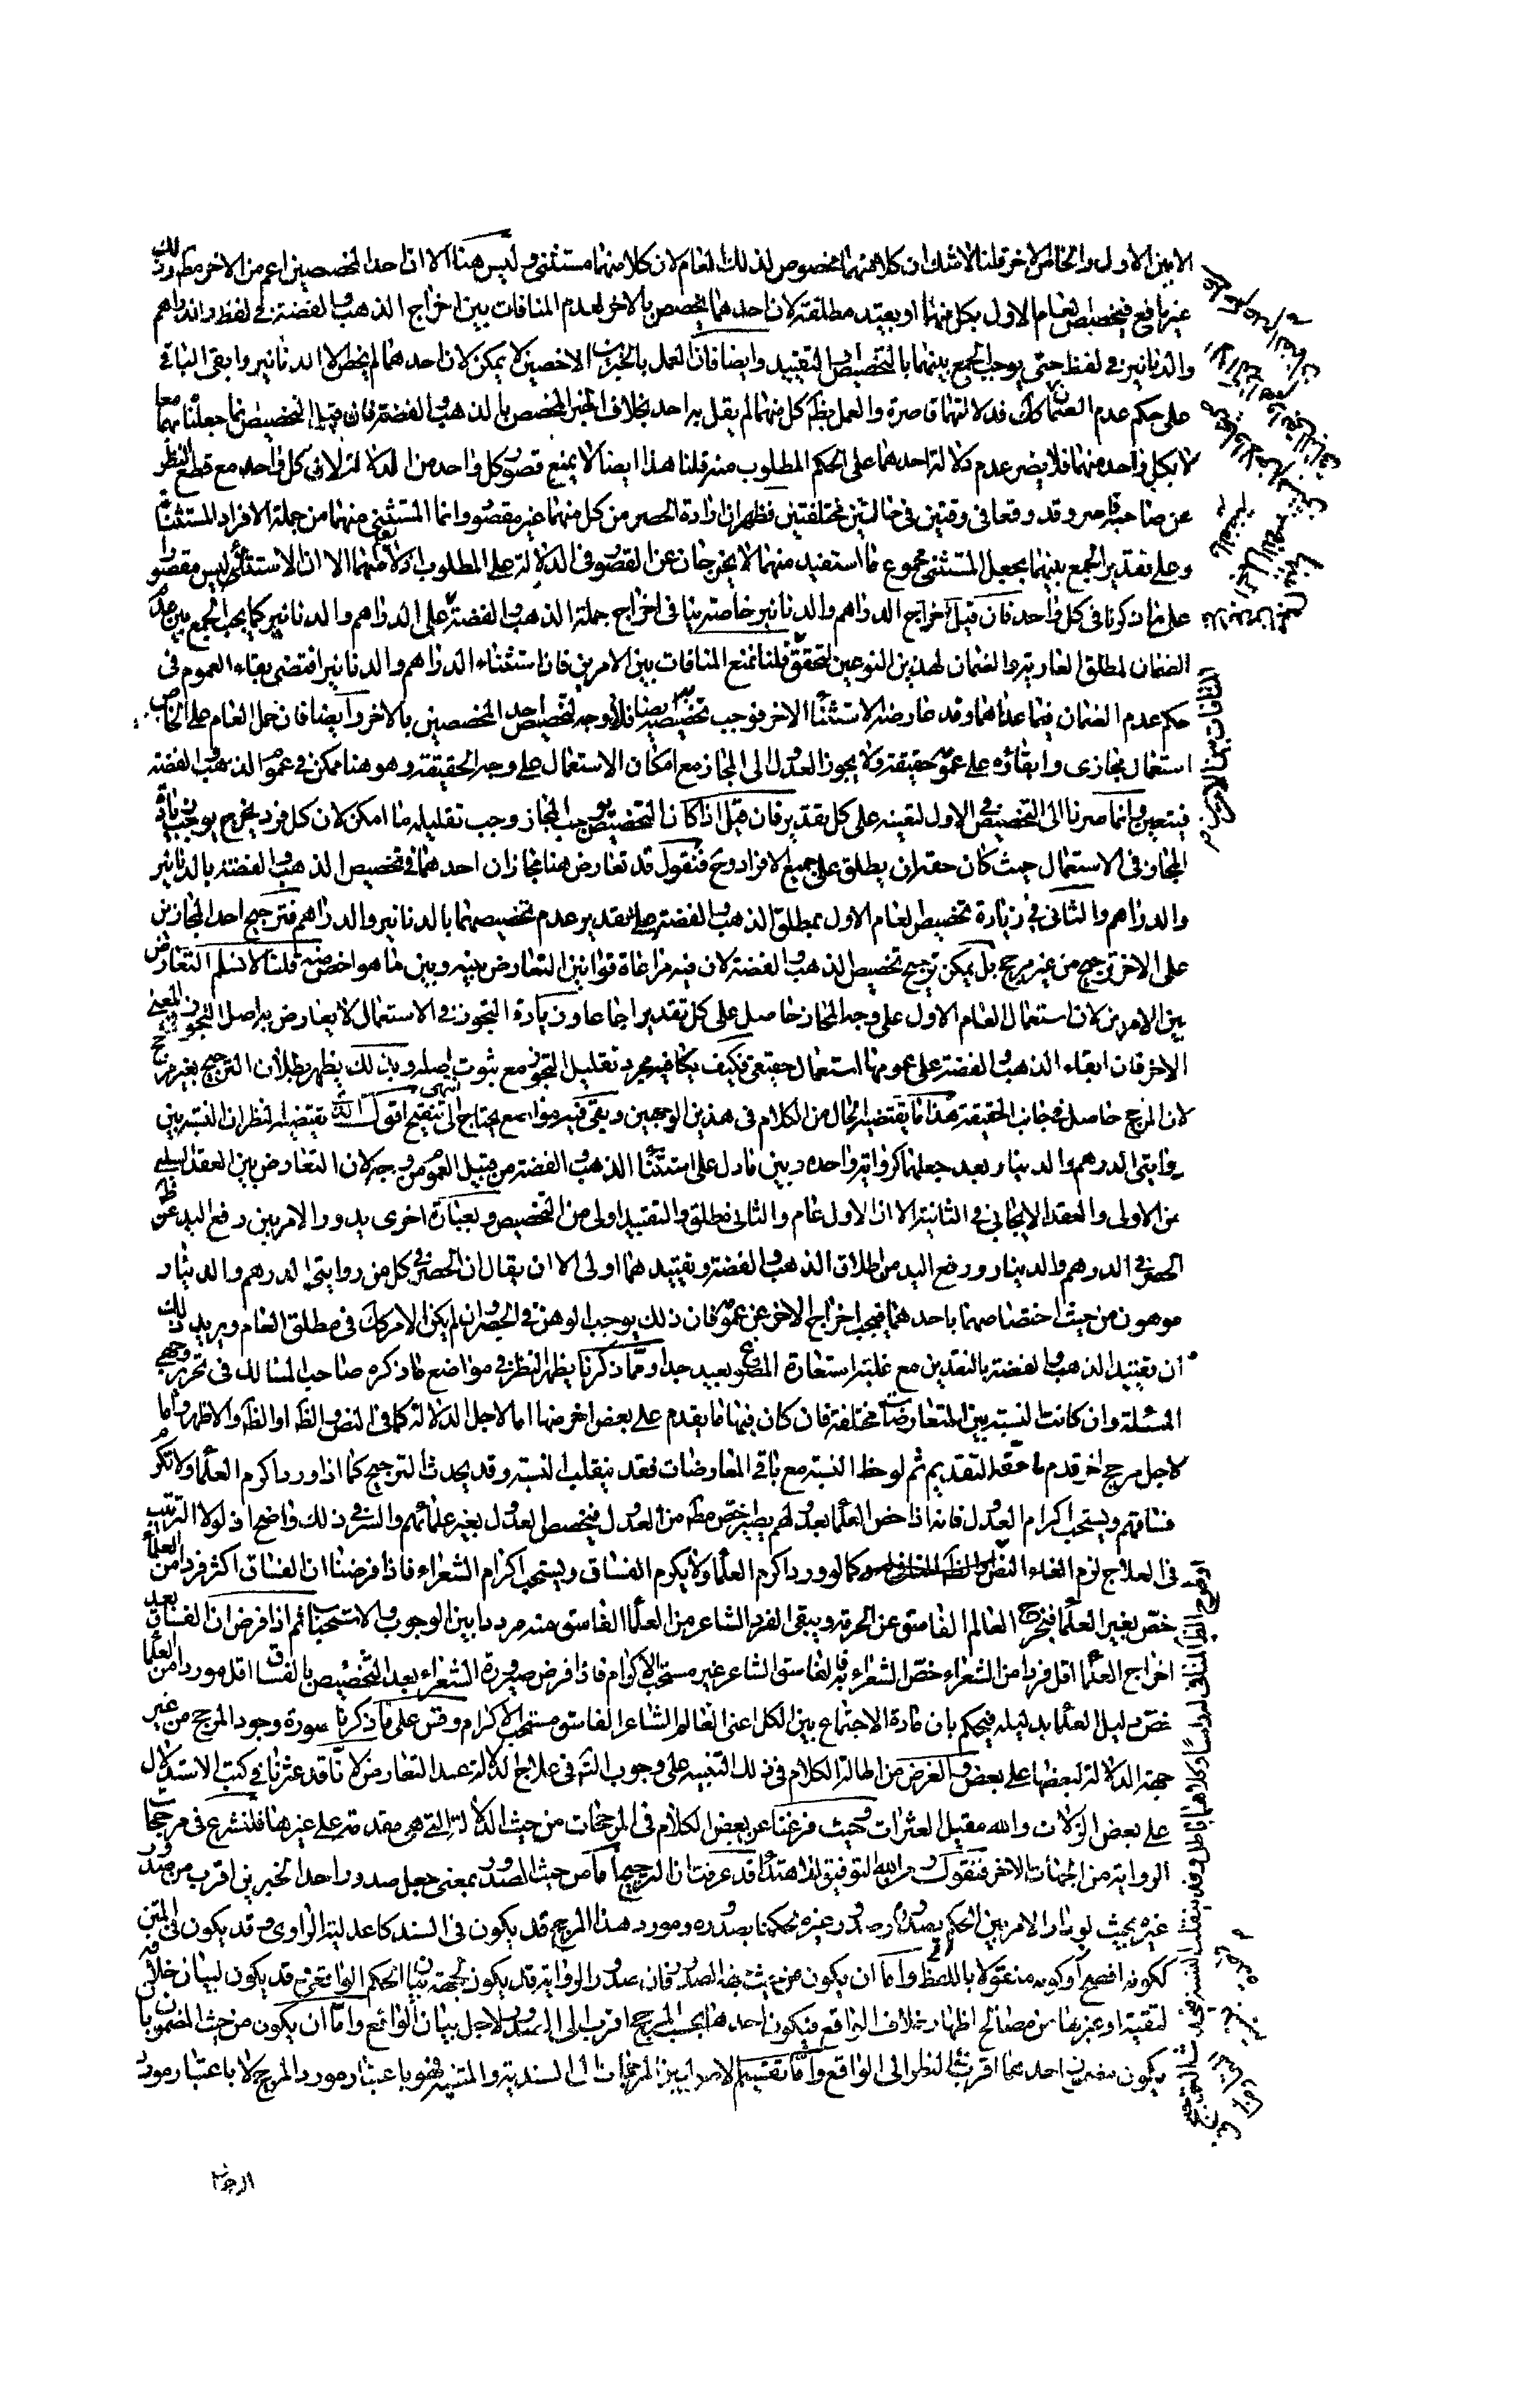 الامين الاول والخاص الاخر قلنا لا شك ان كلا منهما مخصوص لذلك العام لان كلا منهما مستثنى وليس هنا الا ان احد المخصصين اعم من الاخر مطلقا وذلك
غير مانع فيخصص العام الاول بكل منهما او يقيد مطلقه لان احدهما يخصص بالاخر لعدم المنافات بين اخراج الذهب والفضة في لفظ والدراهم
والدنانير في لفظ حتى يوجب الجمع بينهما بالتخصيص او التقييد وايضا فان العمل بالخبرين الاخصين لا يمكن لان احدهما لم يخص الا الدنانير وابقى الباقي
على حكم عدم الضمان كك فدلالتهما قاصرة والعمل بظ كل منهما لم يقل به احد بخلاف الخبر المخصص بالذهب والفضة فان قيل التخصيص انما جعلناه بهما معا
لا بكل واحد منهما فلا يضر عدم دلالة احدهما على الحكم المطلوب منه قلنا هذا ايضا لا يمنع قصور كل واحد من الدلالة لان كل واحد مع قطع النظر
عن صاحبه قاصر وقد وقعا في وقتين في حالتين مختلفتين فظهر ان ارادة الحصر من كل منهما غير مقصود وانما المستثنى منهما من جملة الافراد المستثناة
وعلى تقدير الجمع بينهما بجعل المستثنى مجموع ما استفيد منهما لا يخرجان عن القصور في الدلالة على المطلوب اذ لا منهما الا ان الاستثناء ليس مقصورا
على ما ذكرنا في كل واحد فان قيل اخراج الدراهم والدنانير خاصة ينافي اخراج جملة الذهب والفضة على الدراهم والدنانير كما يجب الجمع بين عدم
الضمان لمطلق العارية والضمان لهذين النوعين لتحقق قلنا نمنع المنافات بين الامرين فان استثناء الدراهم والدنانير اقتضى بقاء العموم في
حكم عدم الضمان فيما عداهما وقد عارضه الاستثناء الاخر فوجب تخصيصه به ايضا فلا وجه لتخصيص احد المخصصين بالاخر وايضا فان حمل العام على الخاص
استعمال مجازى وابقاؤه على عمومه حقيقة ولا يجوز العدول الى المجاز مع امكان الاستعمال على وجه الحقيقة وهو هنا ممكن في عموم الذهب والفضة
فيتعين وانما صرنا الى التخصيص في الاول لتعينه على كل تقدير فان قيل اذا كان التخصيص يوجب المجاز وجب تقليله ما امكن لان كل فرد يخرج يوجب زيادة
المجاز في الاستعمال حيث كان حقه ان يطلق على جميع الافراد وح فنقول قد تعارض هنا مجازان احدهما في تخصيص الذهب والفضة بالدنانير
والدراهم والثاني في زيادة تخصيص العام الاول بمطلق الذهب والفضة على تقدير عدم تخصيصهما بالدنانير والدراهم فترجيح احد المجازين
على الاخر ترجيح من غير مرجح بل يمكن ترجيح تخصيص الذهب والفضة لان فيه مراعاة قوانين التعارض بينه وبين ما هو اخص منه قلنا لا نسلم التعارض
بين الامرين لان استعمال العام الاول على وجه المجاز حاصل على كل تقدير اجماعا وزيادة التجوز في الاستعمال لا يعارض به اصل التجوز في المعنى
الاخر فان ابقاء الذهب والفضة على عمومها استعمال حقيقي فكيف يكافيه مجرد تقليل التجوز مع ثبوت اصله وبذلك يظهر بطلان الترجيح بغير مرجح
لان المرجح حاصل في جانب الحقيقة هذا ما يقتضيه الحال من الكلام في هذين الوجهين وبقى فيه مواضع يحتاج الى تنقيح انتهى اقول الذي يقتضيه النظر ان النسبة بين
روايتي الدرهم والدينار بعد جعلهما كرواية واحدة وبين ما دل على استثناء الذهب والفضة من قبيل العموم من وجه لان التعارض بين العقد السلبي
من الاولى والعقد الايجابي في الثانية الا ان الاول عام والثاني مطلق والتقييد اولى من التخصيص وبعبارة اخرى يدور الامر بين رفع اليد عن ظ
الحصر في الدرهم والدينار ورفع اليد من اطلاق الذهب والفضة وتقييدهما اولى الا ان يقال ان الحصر في كل من روايتي الدرهم والدينار
موهون من حيث اختصاصهما باحدهما فيجب اخراج الاخر عن عمومه فان ذلك يوجب الوهن في الحصر وان لم يكن الامر كك في مطلق العام ويريد ذلك
ان تقييد الذهب والفضة بالنقدين مع غلبة استعارة المصوغ بعيد جدا ومما ذكرنا يظهر النظر في مواضع مما ذكره صاحب المسالك في تحرير وجهي
المسئلة وان كانت النسبة بين المتعارضات مختلفة فان كان فيها ما يقدم على بعض اخر منها اما لاجل الدلالة كما في النص والظ او الظ والاظهر واما
لاجل مرجح اخر قدم ما حقه التقديم ثم لوحظ النسبة مع باقي المعارضات فقد ينقلب النسبة وقد يحدث الترجيح كما اذا ورد اكرم العلماء ولا تكرم
فساقهم ويستحب اكرام العدول فانه اذا خص العلماء بعدولهم يصير اخص مطلقا من العدول فيخصص العدول بغير علمائهم والسر في ذلك واضح اذ لولا الترتيب
في العلاج لزم الغاء النص كما لو ورد اكرم العلماء ولا يكرم الفساق ويستحب اكرام الشعراء فاذا فرضنا ان الفساق اكثر فردا من العلماء
خص بغير العلماء فيخرج العالم الفاسق عن الحرمة ويبقى الفرد الشاعر من العلماء الفاسق منه مرددا بين الوجوب والاستحباب ثم اذا فرض ان الفساق بعد
اخراج العلماء اقل فردا من الشعراء خص الشعراء به فالفاسق الشاعر غير مستحب الاكرام فاذا فرض صيرورة الشعراء بعد التخصيص بالفساق اقل موردا من العلماء
خص دليل العلماء بدليله فيحكم بان مادة الاجتماع بين الكل اعنى العالم الشاعر الفاسق مستحب الاكرام وقس على ما ذكرنا صورة وجود المرجح من غير
جهة الدلالة لبعضها على بعض والغرض من اطالة الكلام في ذلك التنبيه على وجوب التا في علاج الدلالة عند التعارض لانا قد عثرنا في كتب الاستدلال
على بعض الزلات والله مقيل العثرات وحيث فرغنا عن بعض الكلام في المرجحات من حيث الدلالة التي هي مقدمة على غيرها فلنشرع في مرجحات
الرواية من الجهات الاخر فنقول ومن الله التوفيق للاهتداء قد عرفت ان الترجيح اما من حيث الصدور بمعنى جعل صدور احد الخبرين اقرب من صدور
غيره بحيث لو دار الامر بين الحكم بصدوره وصدور غيره لحكمنا بصدوره ومورد هذا المرجح قد يكون في السند كاعدلية الراوى وقد يكون في المتن
لكونه افصح او كونه منقولا باللفظ واما ان يكون من حيث جهة الصدور فان صدور الرواية قد يكون لجهة بيان الحكم الواقعي وقد يكون لبيان خلافه
لتقية او غيرها من مصالح اظهار خلاف الواقع فيكون احدهما بحسب المرجح اقرب الى الصدور لاجل بيان الواقع واما ان يكون من حيث المضمون بان
يكون مضمون احدهما اقرب في النظر الى الواقع واما تقسيم الاصوليين المرجحات الى السندية والمتنية فهو باعتبار مورد المرجح لا باعتبار مورد
الرجحان